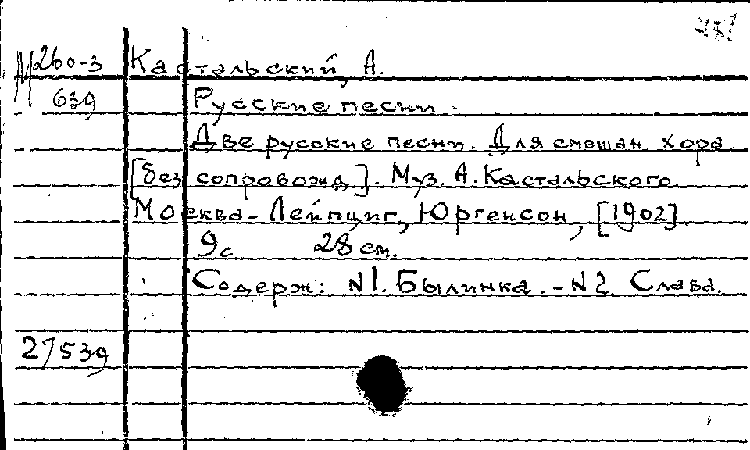 М260-3 Кастальский, А.
639 Русские песни.
Две русские песни. Для смешан. хора
[без сопровожд.]. Муз. А. Кастальского.
Москва - Лейпциг, Юргенсон, [1902].
9с 28 см.
Содерж: N1. Былинка. - N2 Слава.
27539